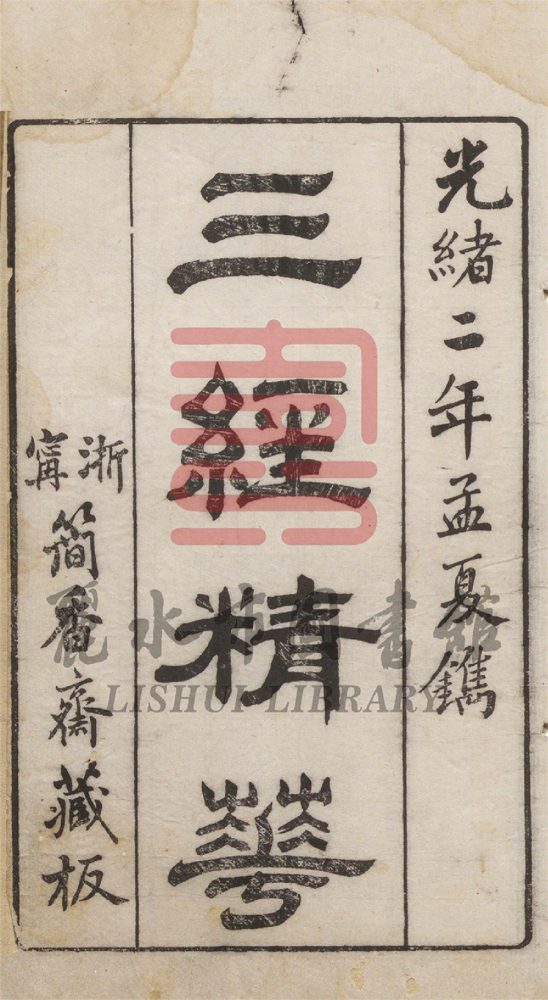 光緒二年孟夏鐫
三經精華
浙甯簡香齋藏板
麗水市圖書館
LISHUI LIBRARY